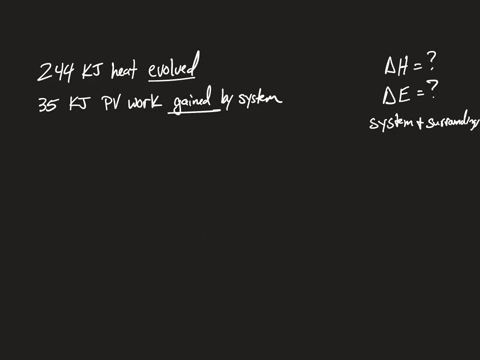 244 KJ heat evolved
35 KJ PV work gained by system
ΔH = ?
ΔE = ?
system + surroundings